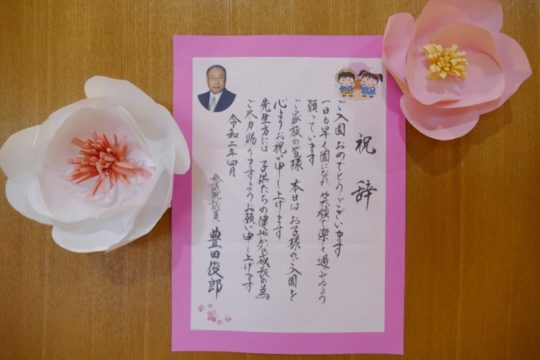 祝辞
ご入園おめでとうございます
一日も早く園になれ笑顔で楽しく過せるよう
願っています
ご家族の皆様 本日はお子様のご入園を
心よりお祝い申し上げます
先生方には子供たちの健やかな成長の為
ご尽力賜りますようお願い申し上げます
令和二年四月
参議院議員 豊田俊郎